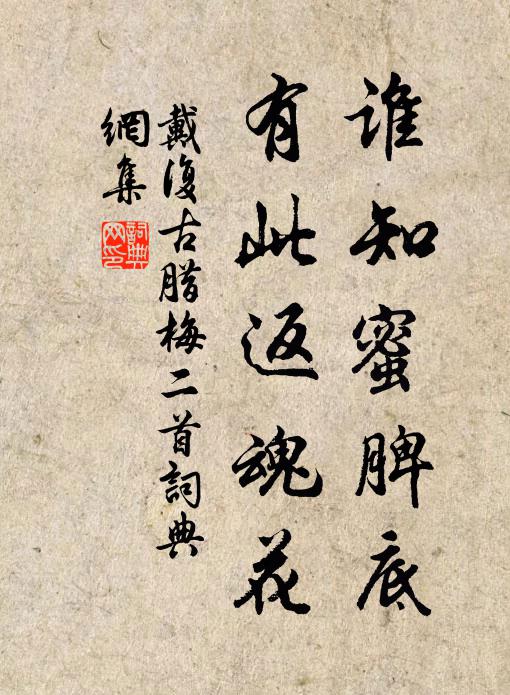 谁知蜜脾底
有此返魂花
戴復古腊梅二首詞典
網集
詞典网印